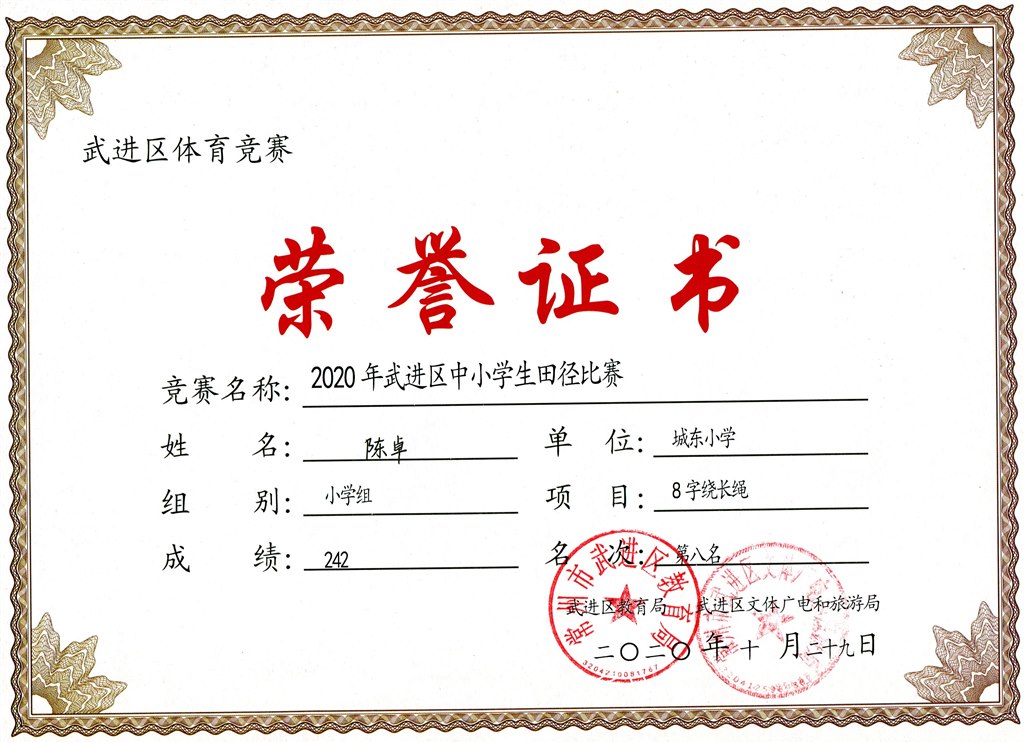 武进区体育竞赛
荣誉证书
竞赛名称：2020年武进区中小学生田径比赛
姓 名：陈卓 单 位：城东小学
组 别：小学组 项 目：8字绕长绳
成 绩：242 名 次：第八名
常州市武进区教育局
武进区教育局 武进区文体广电和旅游局
二〇二〇年十月二十九日